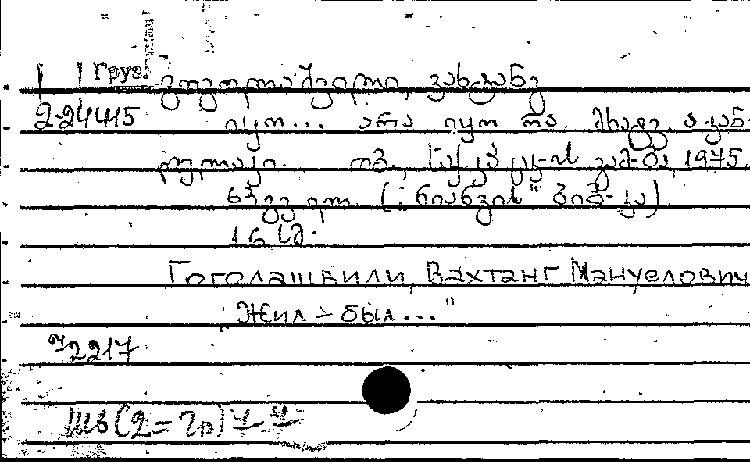 Груз.
გოგოლაშვილი, ვახტანგ
2-24415 იყო... არა იყო რა. მხატვ. ა. კან-
დელაკი. თბ., საქ. კპ ცკ-ის გამ-ბა, 1975.
63 გვ. ილ. („ნიანგის" ბიბ-კა)
16 სმ.
Гоголашвили, Вахтанг Мануелович
„Жил-был..."
2217
Шв(2=Гр)7-4